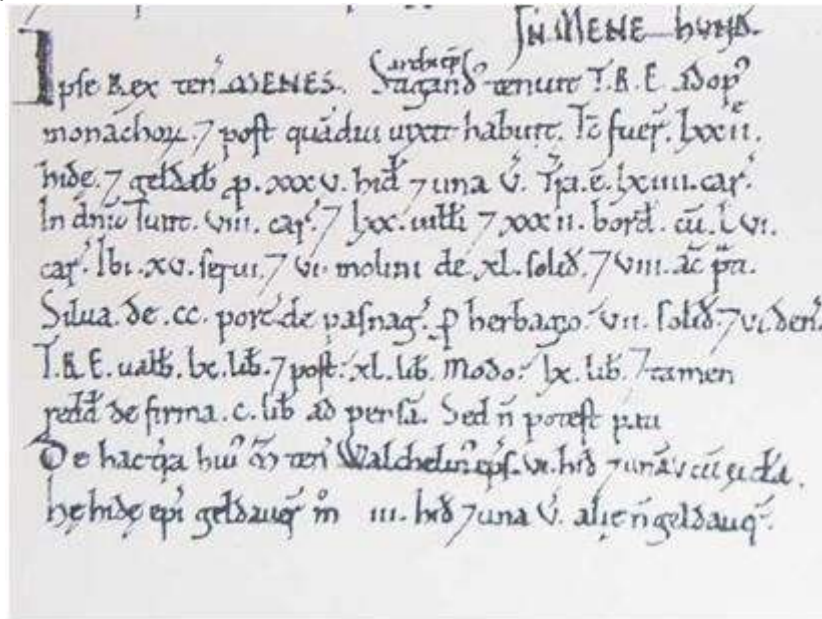 IN MENE HUND.
archiep̃s
Ipse Rex ten' MENES. Stigand' tenuit T.R.E. ad op'
monachoꝝ. ⁊ post quādiu uixit habuit. Tc̄ fuer̄. lxxii.
hidę. ⁊ geldab̄ ꝓ. xxxv. hid' ⁊ una v̄. Tr̄a. ē. lxiiii. car'.
In dn̄io sunt. viii. car'. ⁊ lxx. uilłi ⁊ xxxii. bord'. cū. lvi.
car'. Ibi. xv. serui. ⁊ vi. molini de. xl. solid'. ⁊ viii. ac̄ p̄ti.
Silua. de. cc. porc' de pasnag'. ꝓ herbagio. vii. solid'. ⁊ vi den'.
T.R.E. ualb̄. lx. lib̄. ⁊ post. xl. lib̄. Modo. lx. lib̄. ⁊ tamen
redd' de firma. c. lib̄ ad pensā. Sed n̄ potest pati
De hac tr̄a hui' m̄ ten' Walchelin' ep̃s. vi. hid' ⁊ unā v̄ cū
hę hidę ep̄i geldauer̄ m̄ iii. hid' ⁊ una v̄. alię n̄ geldauer̄.